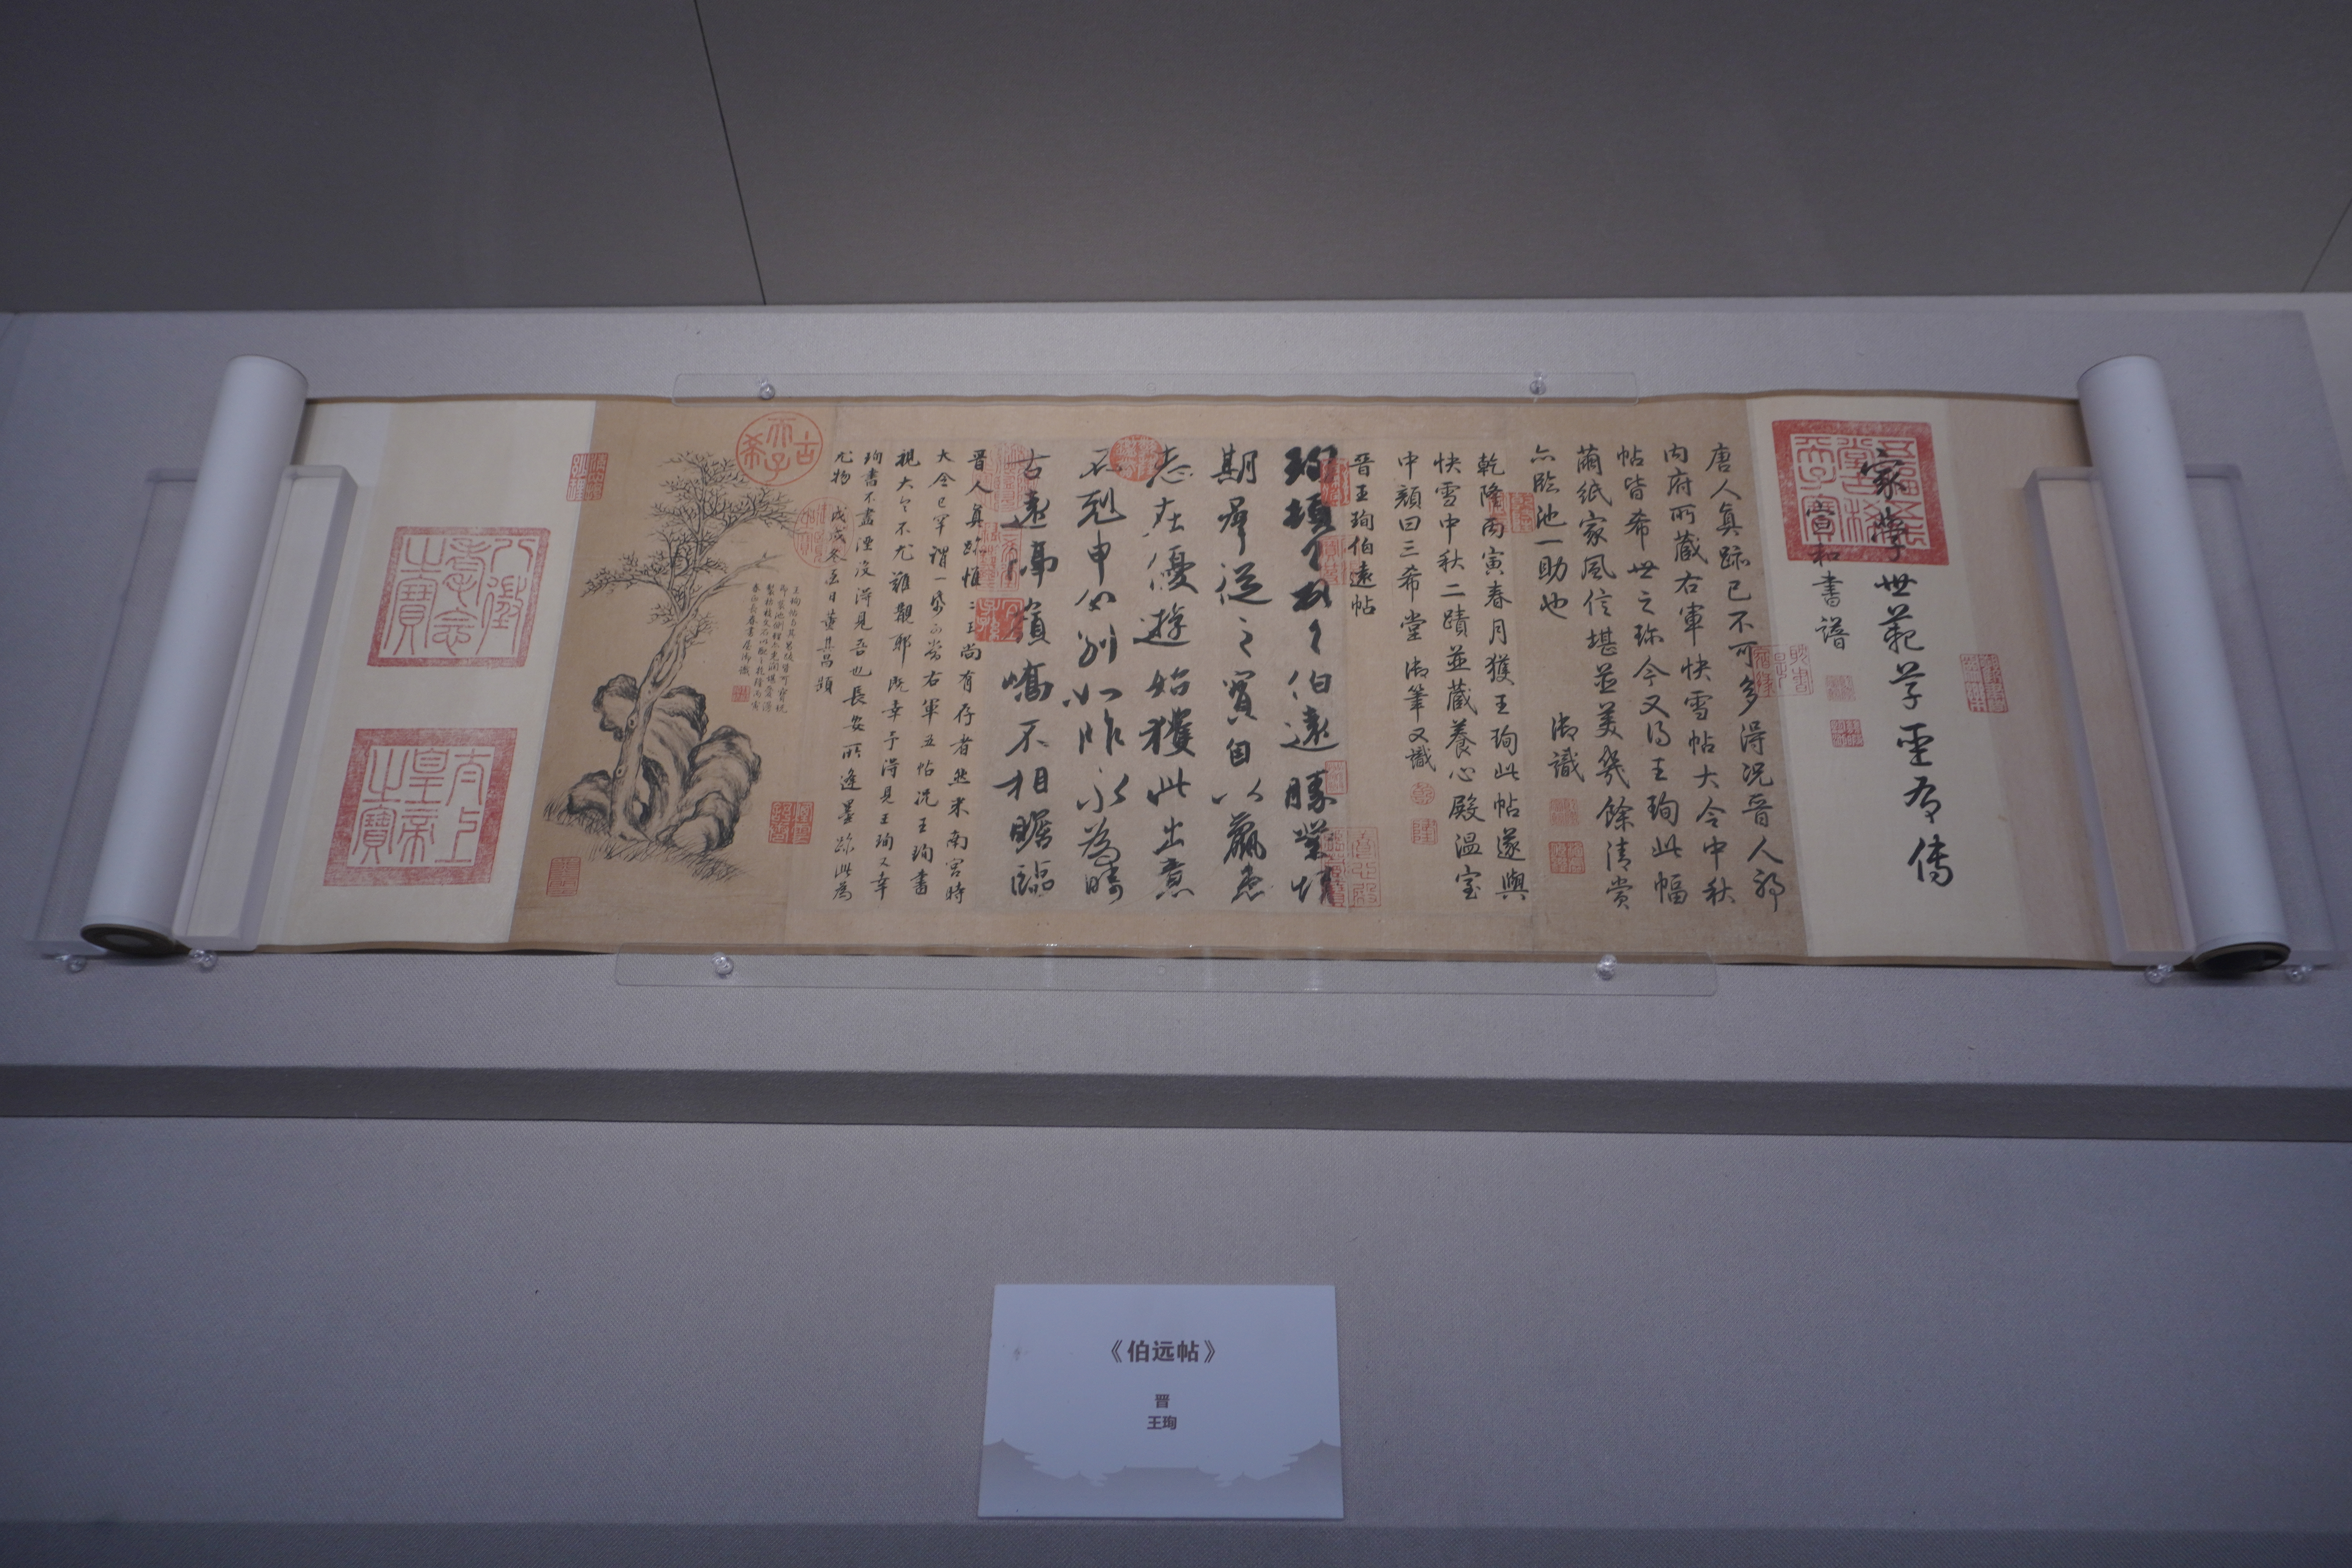 家學世範草聖有傳
宣和書譜
唐人真跡已不可多得況晉人耶
內府所藏右軍快雪帖大令中秋
帖皆希世之珍今又得王珣此幅
繭紙家風信堪並美幾餘清賞
亦臨池一助也 御識
乾隆丙寅春月獲王珣此帖遂與
快雪中秋二蹟並藏養心殿溫室
中顏曰三希堂 御筆又識
晉王珣伯遠帖
珣頓々首々伯遠勝業情
期群從之寶自以羸患
志在優遊始獲此出意
不剋申分別如昨永為疇
古遠隔嶺嶠不相瞻臨
晉人真跡惟二王尚有存者然米南宮時
大令已罕謂一紙可當右軍五帖況王珣書
視大令不尤難覯耶既幸予得見王珣又幸
珣書不盡湮沒得見吾也長安所逢墨跡此為
尤物 戊戌冬至日董其昌題
古希天子
八徵耄念之寶
太上皇帝之寶
《伯远帖》
晋
王珣